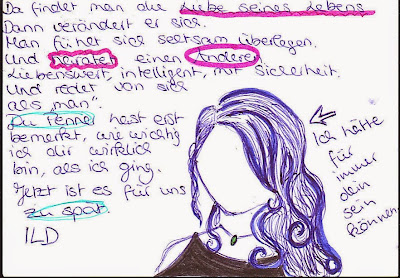 Da findet man die Liebe seines Lebens
Dann verändert er sich.
Man fühlt sich seltsam überlagen.
Und Heiratet einen Anderen
Liebenswert, intelligent, mit Sicherheit.
Und redet von sich
als „man".
Du Penner hast erst
bemerkt, wie wichtig
ich dir wirklich
bin, als ich ging.
Jetzt ist es für uns
zu spät.
ILD
Ich hätte
für
immer
dein
sein
können.